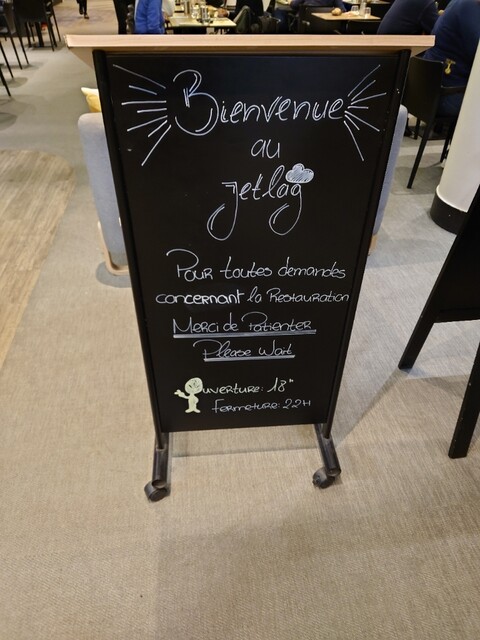 Bienvenue
au
jetlag
Pour toutes demandes
concernant la Restauration
Merci de Patienter
Please Wait
Ouverture: 18H
Fermeture: 22H